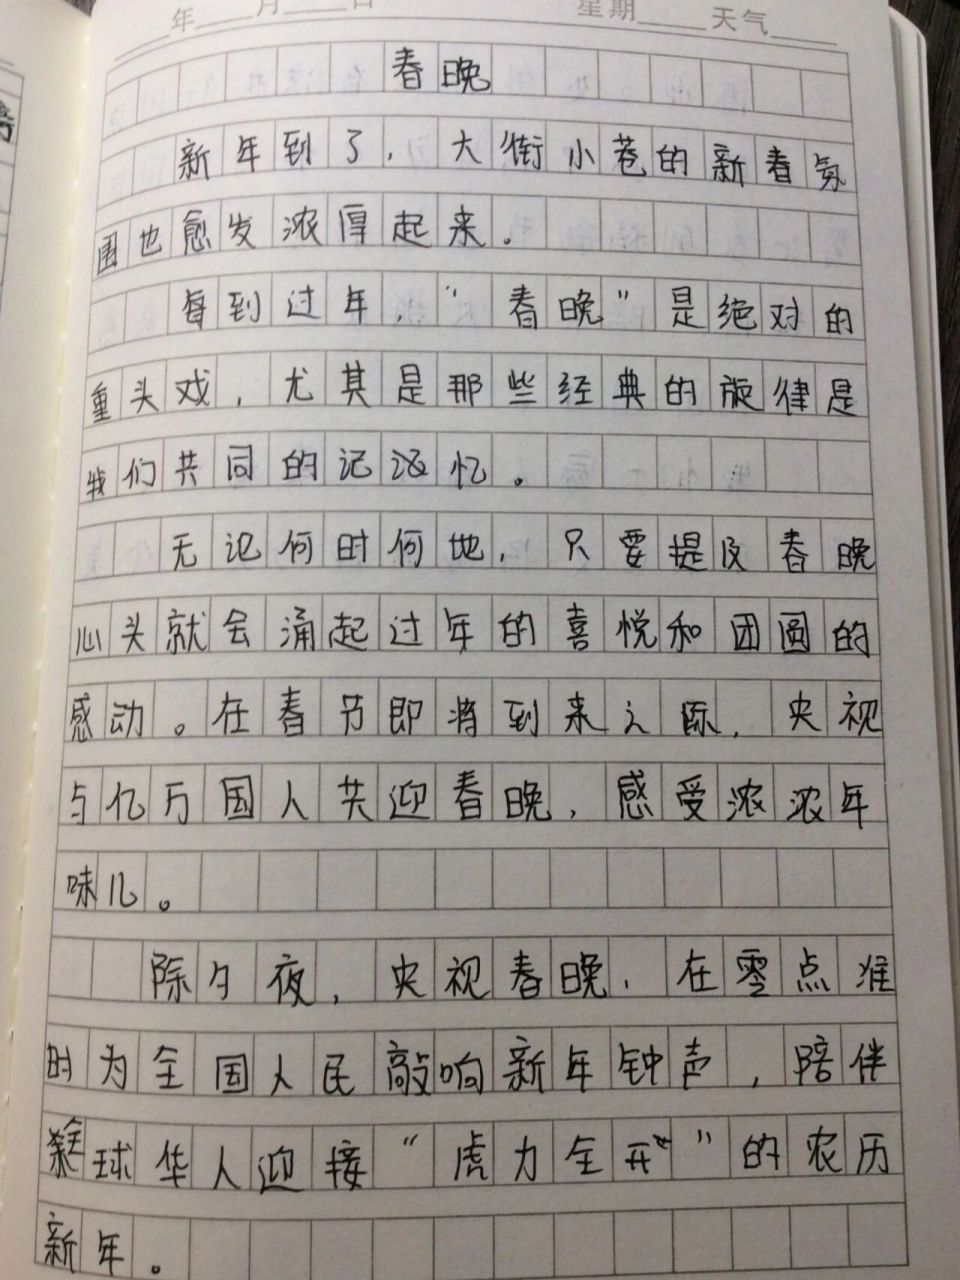 年 月 日 星期 天气
春晚
新年到了，大街小巷的新春氛
围也愈发浓厚起来。
每到过年，“春晚”是绝对的
重头戏，尤其是那些经典的旋律是
我们共同的记忆。
无论何时何地，只要提及春晚
心头就会涌起过年的喜悦和团圆的
感动。在春节即将到来之际，央视
与亿万国人共迎春晚，感受浓浓年
味儿。
除夕夜，央视春晚，在零点准
时为全国人民敲响新年钟声，陪伴
全球华人迎接“虎力全开”的农历
新年。